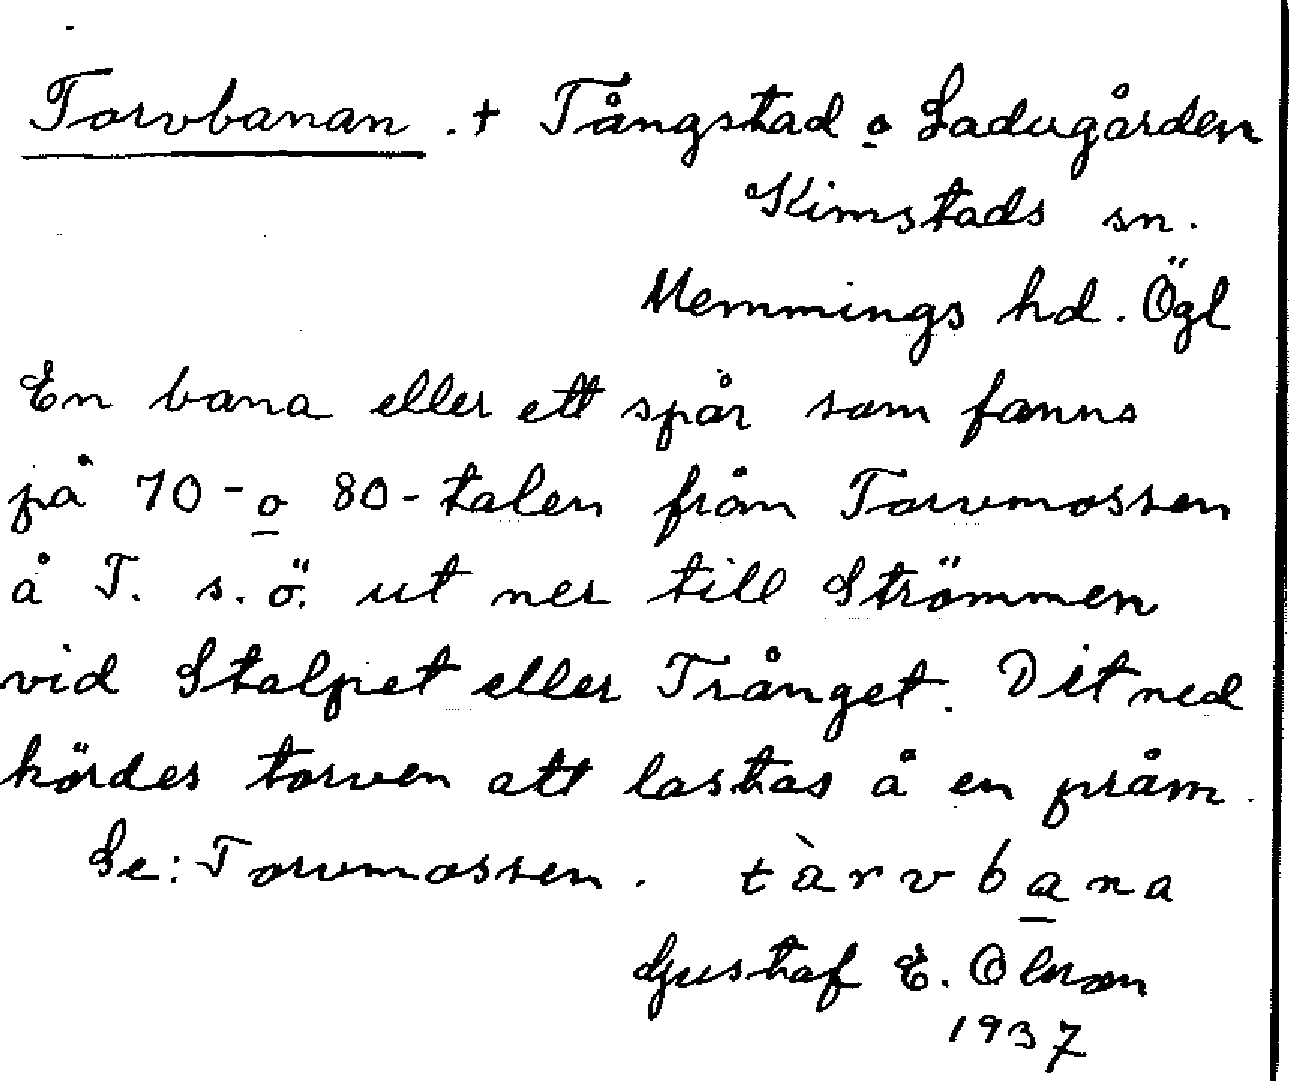 Torvbanan . + Tångstad o Ladugården
Kimstads sn.
Memmings hd. Ögl
En bana eller ett spår som fanns
på 70- o 80-talen från Torvmossen
å T. s.ö. ut ner till Strömmen
vid Stalpet eller Trånget. Dit ned
kördes torven att lastas å en pråm.
Se: Torvmossen. tàrvbana
Gustaf E. Olsson
1937